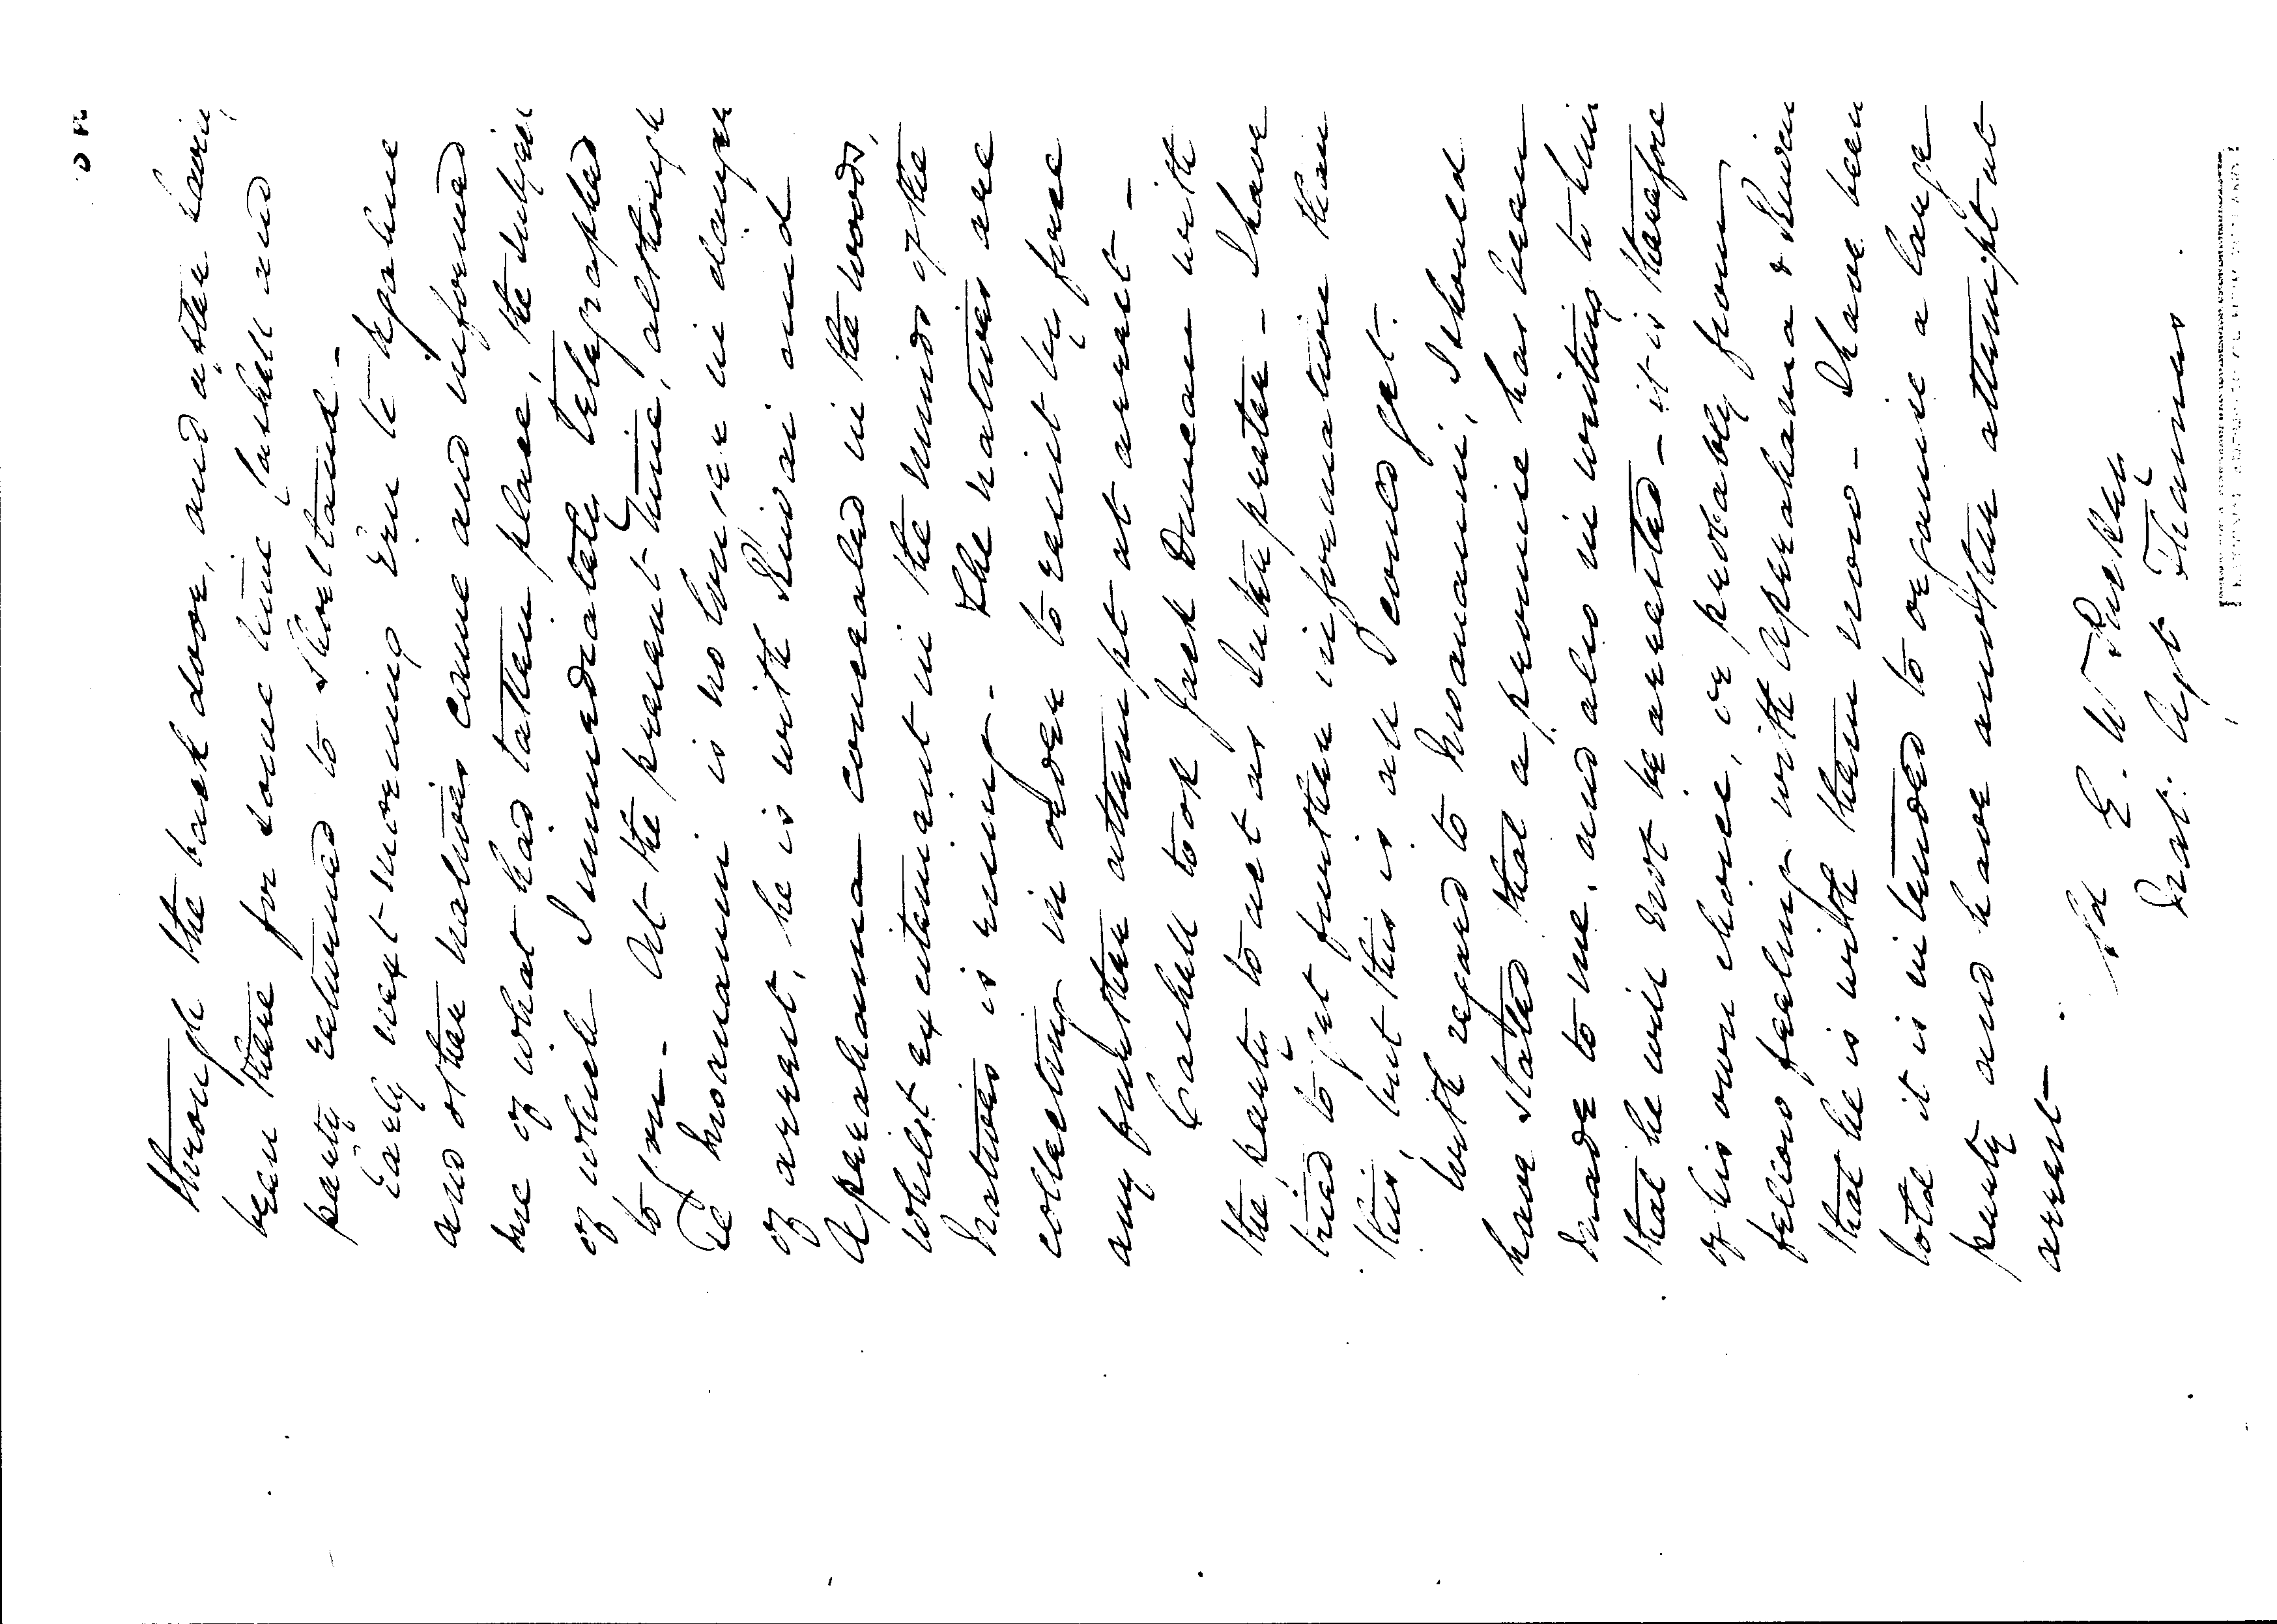 through the back door, and after having
been there for some time Cashell and
party returned to Shortland -
Early next morning Eru te
and other natives came and informed
me of what had taken place, the subject
of which I immediately telegraphed
to you - At the present time, although
Te Moananui is no longer in danger
of arrest, he is with Pineaha and
Aperahama concealed in the woods,
whilst excitement in the minds of the
Natives is rising - The natives are
collecting in order to resist by force
any further attempt at arrest -
Cashell took Jack Duncan with
the party to act as Interpreter - I have
tried to get further information than
this, but this is all I could get.
With regard to Moananui, I should
have stated that a promise has been
made to me, and also in writing to him
that he will not be arrested - it is therefore
of his own choice, or probably from
fellow feeling with Aperahama &
that he is with them now - I have been
told it is intended to organise a large
party and have another attempt at
arrest -
Sd E. W Puckey
Nat. Agt Thames.